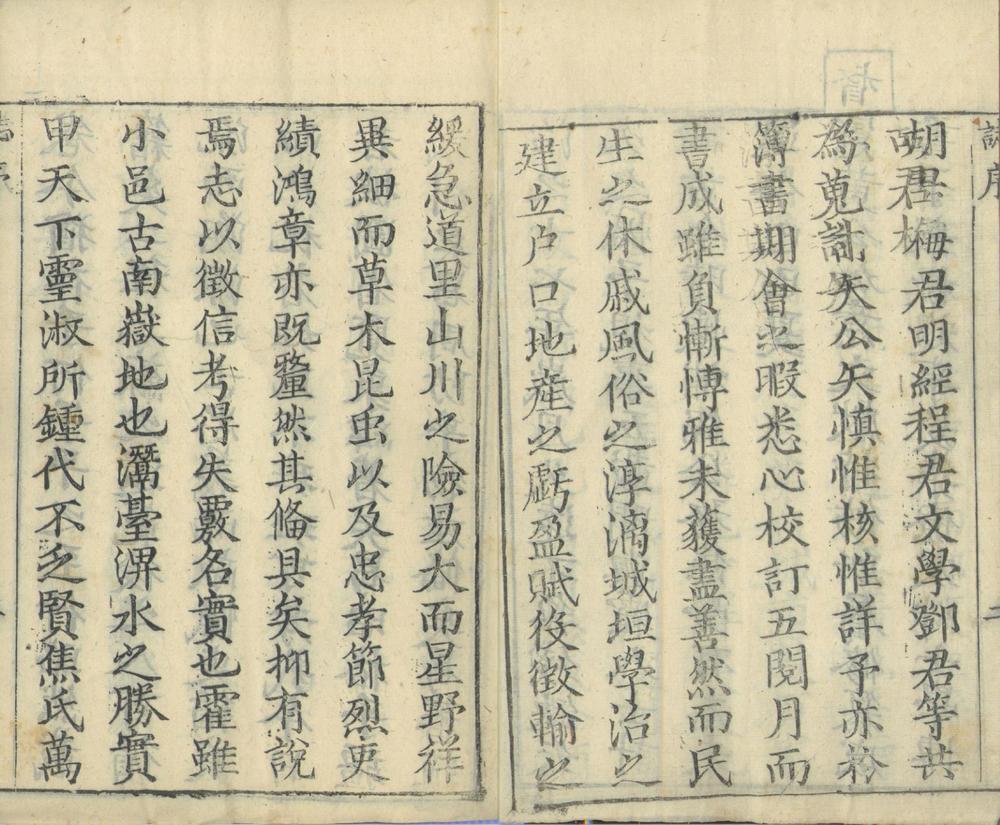 胡君梅君明經程君文學鄧君等共
為蒐討矢公矢慎惟核惟詳予亦於
簿書期會之暇悉心校訂五閱月而
書成雖負慚博雅未獲盡善然而民
生之休戚風俗之淳漓城垣學治之
建立户口地產之虧盈賦役徵輸之
緩急道里山川之險易大而星野祥
異細而草木昆虫以及忠孝節烈吏
績鴻章亦既釐然其俻具矣抑有說
焉志以徵信考得失覈名實也霍雖
小邑古南嶽地也灊臺淠水之勝實
甲天下靈淑所鍾代不乏賢焦氏萬